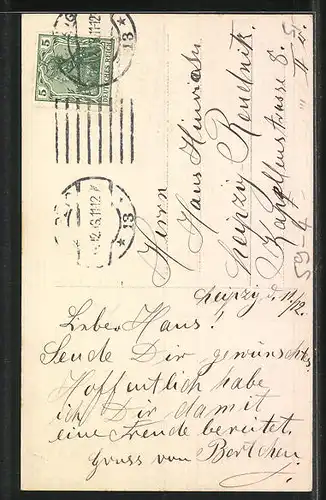 5 5
DEUTSCHES REICH
11-12
* 13 *
.12.6.11-12 V.
* 13 *
Herrn
Hans Hinrichs
Leipzig Reudnitz
strasse 8.
II r.
59-4
Leipzig d. 11/12.
Lieber Hans!
Sende Dir gewünschtes.
Hoffentlich habe
ich Dir damit
eine Freude bereitet.
Gruss von Bertchen.